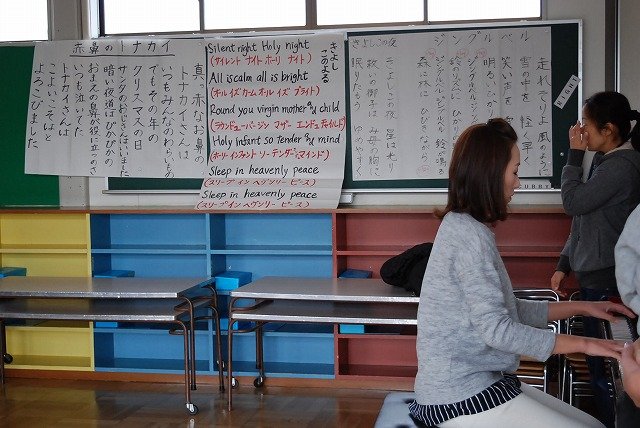 赤鼻のトナカイ
真っ赤なお鼻の
トナカイさんは
いつもみんなのわらいもの
でもその年の
クリスマスの日
サンタのおじさんはいいました
暗い夜道はぴかぴかの
おまえの鼻が役に立つのさ
いつも泣いてた
トナカイさんは
こよいこそはと
よろこびました
きよし
このよる
Silent night Holy night
(サイレント ナイト ホーリ ナイト)
All is calm all is bright
(オール イズ カーム オール イズ ブライト)
Round you virgin mother and child
(ラウンデューバージン マザー エンドュ チャイルド)
Holy infant so tender and mind
(ホーリ インファント ソー テンダー アンド マインド)
Sleep in heavenly peace
(スリープ イン ヘヴンリー ピース)
Sleep in heavenly peace
(スリープ イン ヘヴンリー ピース)
ジングルベル
走れそりよ 風のように
雪の中を 軽く早く
笑い声を
明るい
ジングルベル ジングルベル 鈴が鳴る
鈴のリズムに
ジングルベル ジングルベル 鈴が鳴る
森に林に ひびきながら
きよしこの夜
きよしこの夜 星は光り
救いの御子は み母の胸に
眠りたもう ゆめやすく